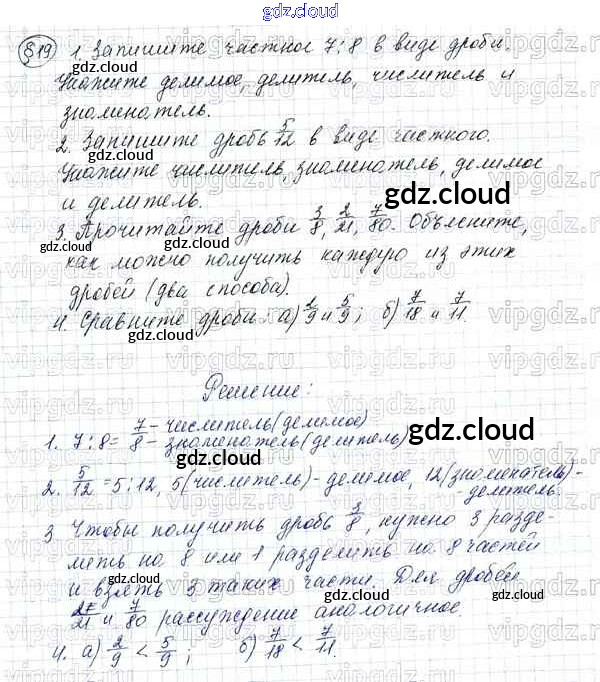 gdz.cloud
§19 1. Запишите частное 7:8 в виде дроби.
Укажите делимое, делитель, числитель и
знаменатель.
2. Запишите дробь 5/12 в виде частного.
Укажите числитель, знаменатель, делимое
и делитель.
3. Прочитайте дроби 3/8, 2/21, 7/80. Объясните,
как можно получить каждую из этих
дробей (два способа).
4. Сравните дроби. а) 2/9 и 5/9; б) 7/18 и 7/11.
Решение:
1. 7:8 = 7/8 - числитель (делимое)
- знаменатель (делитель)
2. 5/12 = 5:12, 5 (числитель) - делимое, 12 (знаменатель) -
- делитель.
3 Чтобы получить дробь 3/8, нужно 3 разде-
лить на 8 или 1 разделить на 8 частей
и взять 3 таких части. Для дробей
2/21 и 7/80 рассуждение аналогичное
4. а) 2/9 < 5/9; б) 7/18 < 7/11.